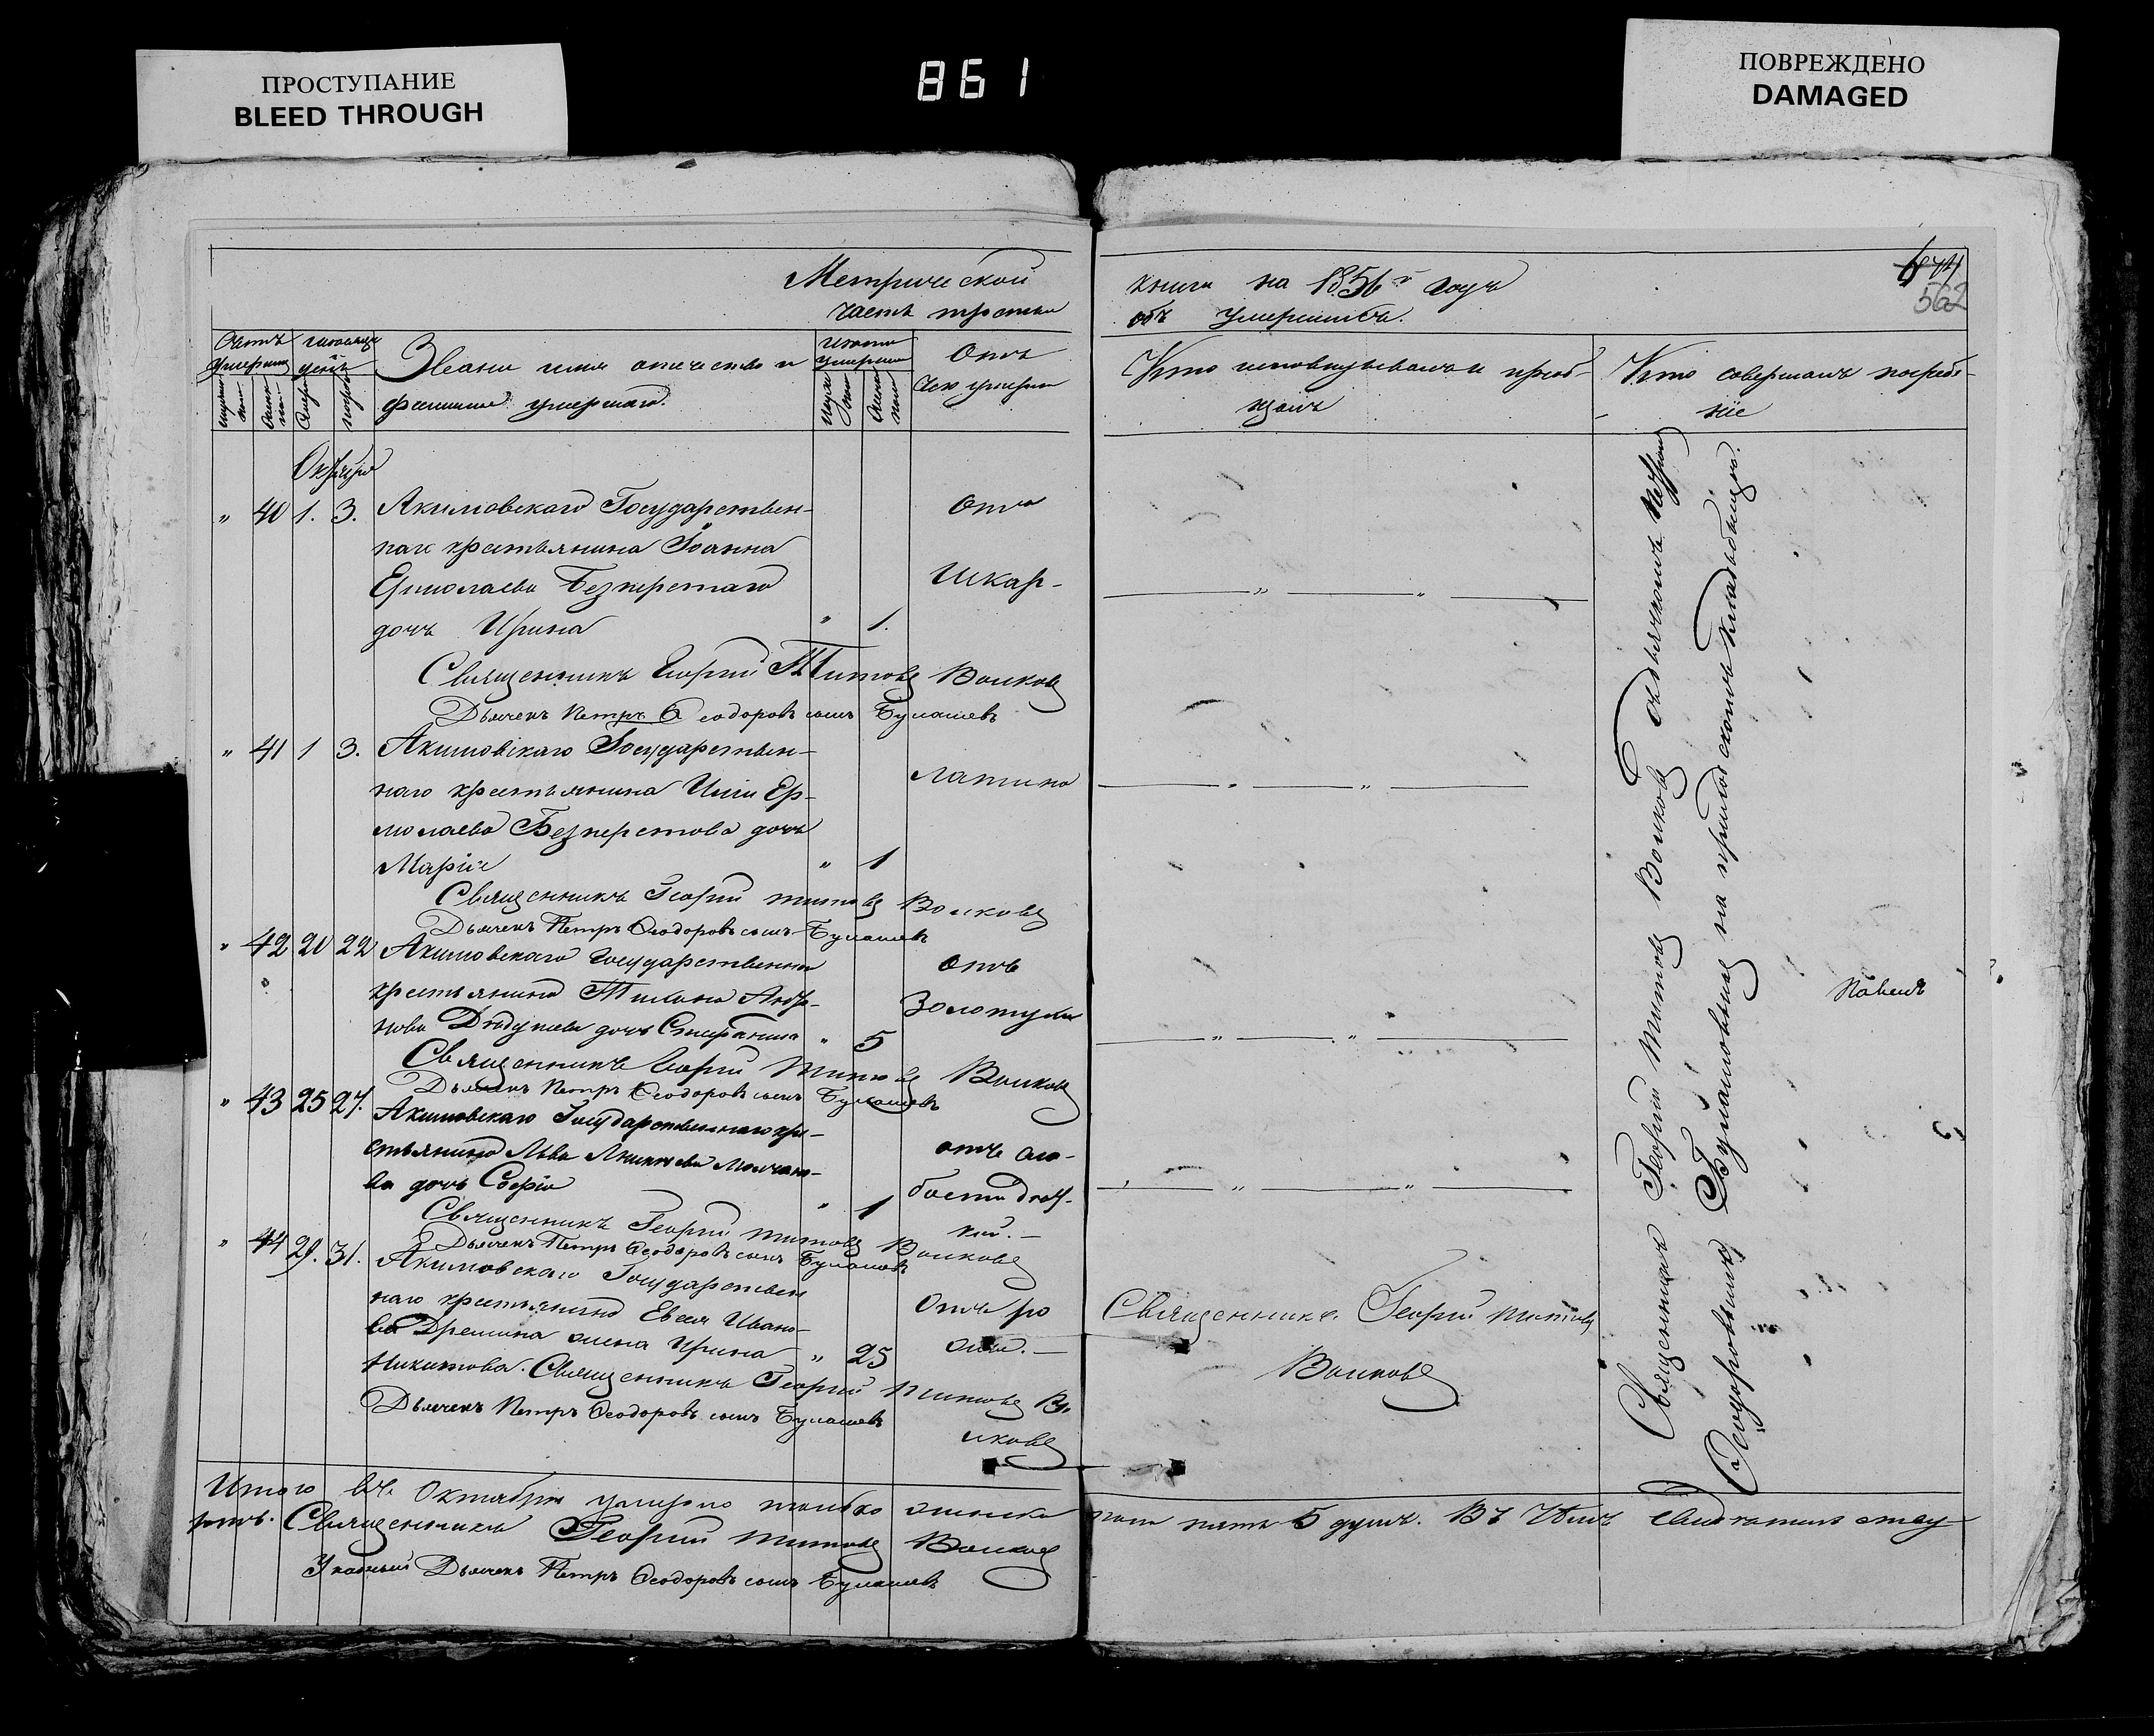 ПРОСТУПАНИЕ
BLEED THROUGH
861
ПОВРЕЖДЕНО
DAMAGED
Метрической
часть третья
книги на 1856й годъ
объ умершихъ.
562
Счетъ
умершихъ
Звание имя отечество и
фамилия умершаго.
Отъ
чего умеръ
Кто исповедывалъ и прiоб-
щалъ
Кто совершалъ погребе-
нiе
Октября
" 40 1. 3. Акимовскаго Государствен-
наго крестьянина Iоанна
Ермолаева Безперстаго
дочь Ирина " 1.
Отъ
Шкар-
Священникъ Георгий Титовъ Волковъ
Дьячекъ Петръ Ѳеодоровъ сынъ Булашевъ
" 41 1 3. Акимовскаго Государствен-
наго крестьянина Ильи Ер-
молаева Безперстова дочь
Марiя " 1
латина
Священникъ Георгий Титовъ Волковъ
Дьячекъ Петръ Ѳеодоровъ сынъ Булашевъ
" 42 20 22 Акимовскаго Государственна
крестьянина Тихона
дочь Стефанида " 5
отъ
Золотухи
Священникъ Георгий Титовъ Волковъ
Дьячекъ Петръ Ѳеодоровъ сынъ Булашевъ
" 43 25 27. Акимовскаго Государственнаго кре-
стьянина Льва Молчано-
ва дочь Софiя " 1
отъ сла-
бости
Священникъ Георгий Титовъ Волковъ
Дьячекъ Петръ Ѳеодоровъ сынъ Булашевъ
" 44 29. 31. Акимовскаго Государствен
наго крестьянина Евсея Ивано-
ва Дремина жена Ирина " 25
Отъ ро
Никитова. Священникъ Георгий Титовъ Во
лковъ
Дьячекъ Петръ Ѳеодоровъ сынъ Булашевъ
Священникъ Георгий Титовъ
Волковъ
Священникъ Георгий Титовъ Волковъ съ дьячкомъ Петромъ
Ѳеодоровымъ Булашовымъ на приходскомъ кладбищѣ.
Итого въ Октябре умерло только женска
го пола пять 5 душъ. Въ чемъ
Священникъ Георгий Титовъ Волковъ
Указный Дьячекъ Петръ Ѳеодоровъ сынъ Булашевъ